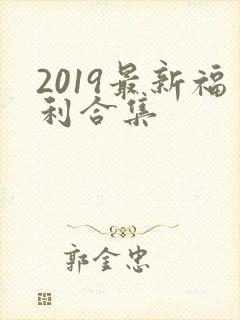 2019最新福
利合集
郭金忠